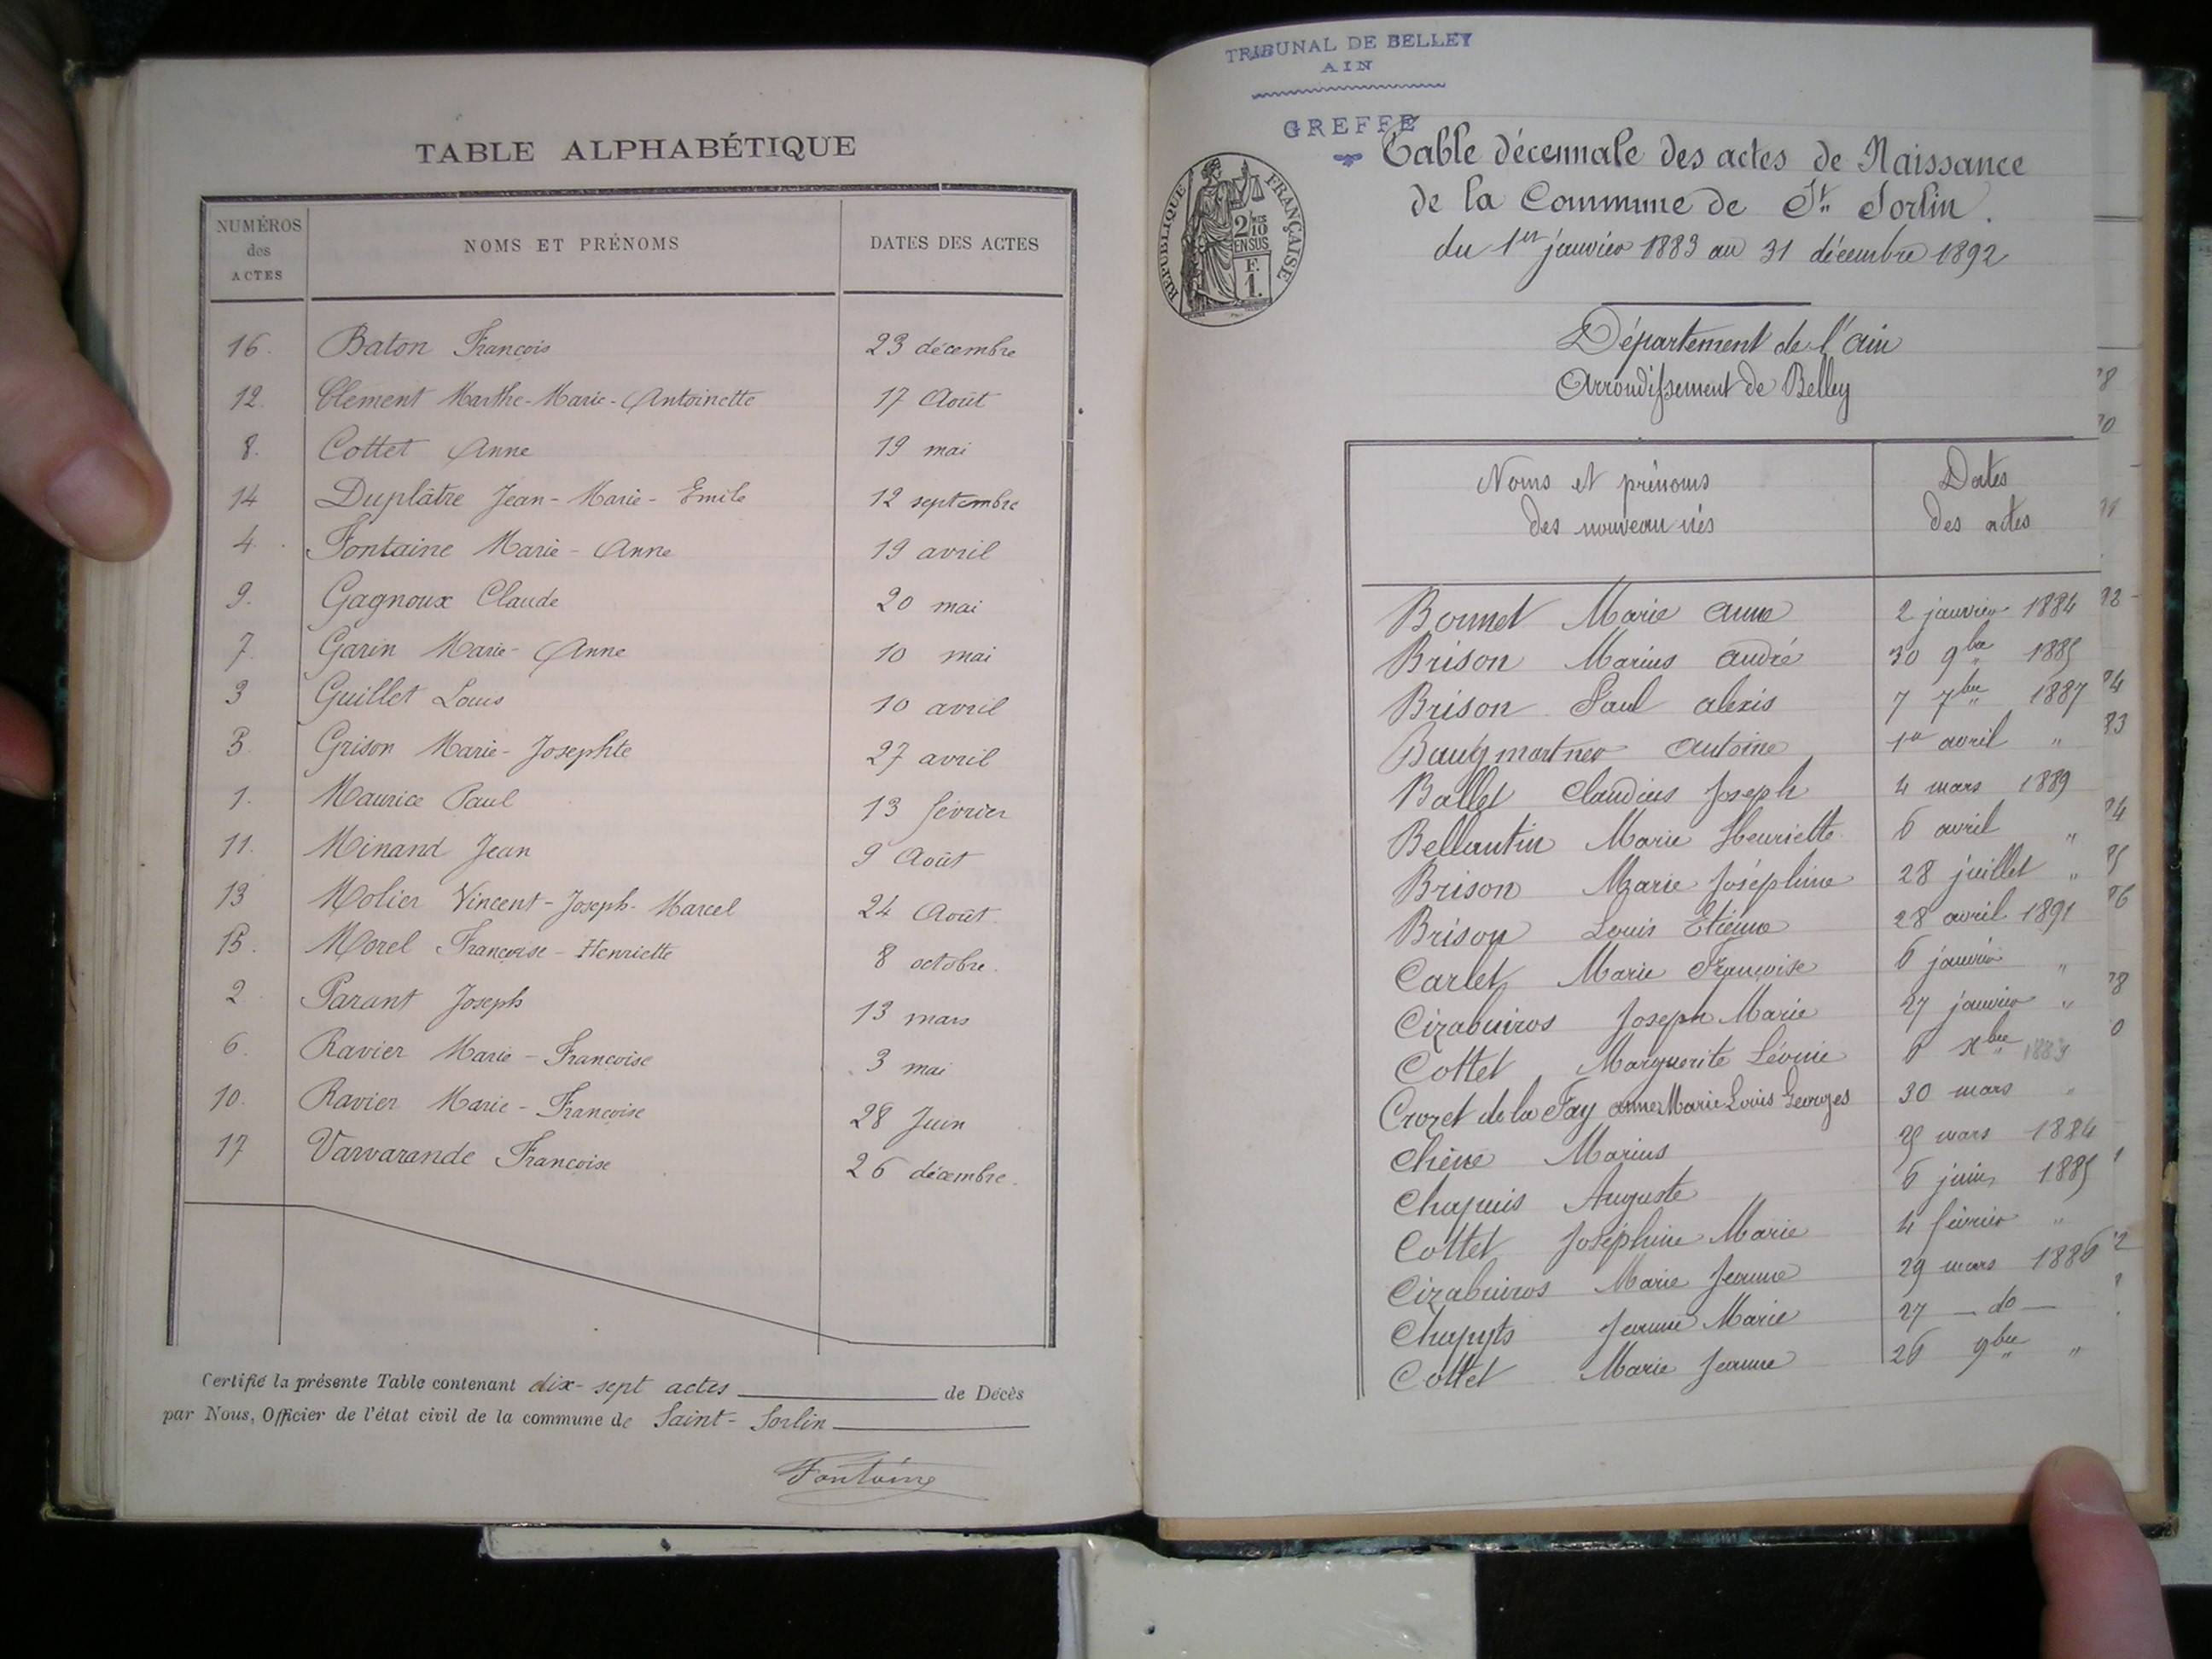 TABLE ALPHABÉTIQUE
NUMÉROS des ACTES NOMS ET PRÉNOMS DATES DES ACTES
16. Baton François 23 décembre
12. Clement Marthe-Marie-Antoinette 17 Août
8. Cottet Anne 19 mai
14 Duplâtre Jean-Marie-Emile 12 septembre
4. Fontaine Marie-Anne 19 avril
9. Gagnoux Claude 20 mai
7. Garin Marie-Anne 10 mai
3 Guillet Louis 10 avril
5. Grison Marie-Josephte 27 avril
1. Maurice Paul 13 février
11. Minand Jean 9 Août
13 Molier Vincent-Joseph-Marcel 24 Août
15. Morel Françoise-Henriette 8 octobre.
2 Parant Joseph 13 mars
6. Ravier Marie-Françoise 3 mai
10. Ravier Marie-Françoise 28 Juin
17 Varvarande Françoise 26 décembre.
Certifié la présente Table contenant dix-sept actes de Décès
par Nous, Officier de l'état civil de la commune de Saint-Sorlin
Fontaine
TRIBUNAL DE BELLEY
AIN
GREFFE
RÉPUBLIQUE FRANÇAISE
2/10 EN SUS
F. 1.
Table décennale des actes de Naissance
de la Commune de St. Sorlin.
du 1er janvier 1883 au 31 décembre 1892
Département de l'Ain
Arrondissement de Belley
Noms et prénoms Dates
des nouveau nés des actes
Bonnet Marie Anne 2 janvier 1884
Brison Marius André 30 9bre 1885
Brison Paul alexis 7 7bre 1887
Baugmartner Antoine 1er avril "
Ballet Claudius Joseph 4 mars 1889
Bellantin Marie Henriette 6 avril "
Brison Marie Joséphine 28 juillet "
Brison Louis Etienne 28 avril 1891
Carlet Marie Françoise 6 janvier "
Cizabuiros Joseph Marie 27 janvier "
Cottet Marguerite Léonie 6 xbre 1883
Crozet de la Fay anne Marie Louis Georges 30 mars "
Chêne Marius mars 1884
Chapuis Auguste 6 juin 1885
Cottet Joséphine Marie 4 février "
Cizabuiros Marie Jeanne 29 mars 1886
Jeanne Marie 27 — do —
Cottet Marie Jeanne 26 9bre "